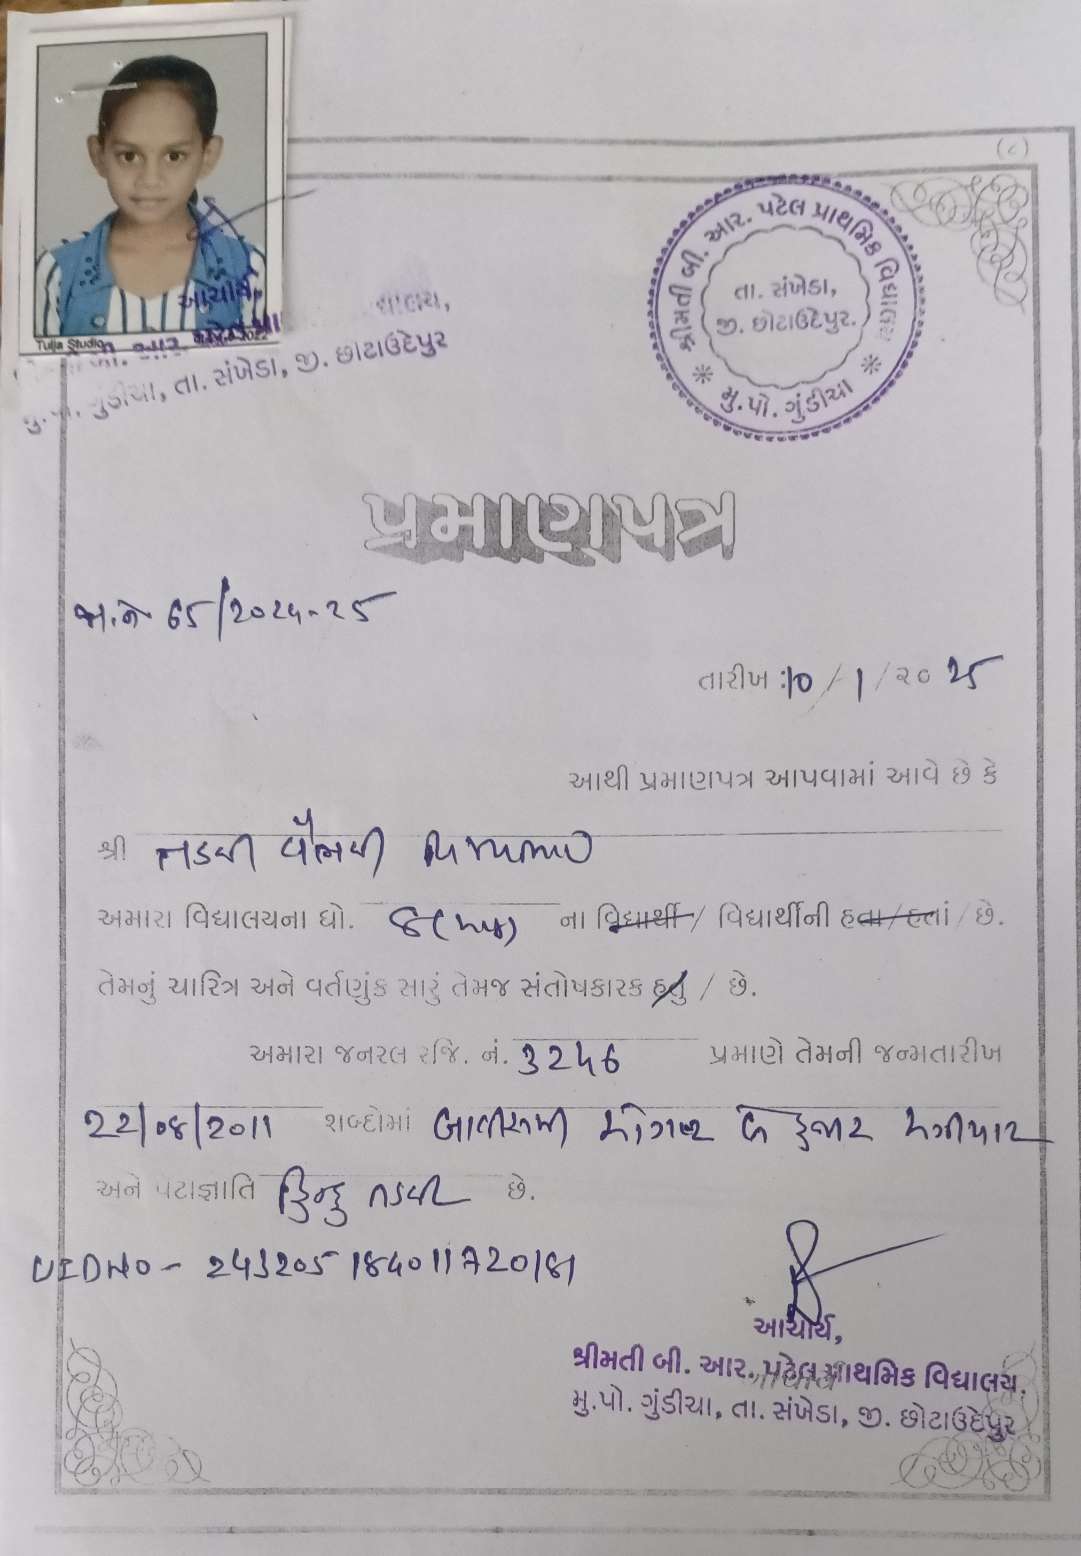 (૮)
શ્રીમતી બી. આર. પટેલ પ્રાથમિક વિદ્યાલય
તા. સંખેડા,
જી. છોટાઉદેપુર.
* મુ.પો. ગુંડીચા *
Tulja Studio
આચાર્ય,
મુ.પો. ગુંડીચા, તા. સંખેડા, જી. છોટાઉદેપુર
પ્રમાણપત્ર
જા.નં 65/2024-25
તારીખ :10/1/૨૦25
આથી પ્રમાણપત્ર આપવામાં આવે છે કે
શ્રી તડવી વૈભવી
અમારા વિદ્યાલયના ધો. ના વિદ્યાર્થી / વિદ્યાર્થીની હતા/હતાં / છે.
તેમનું ચારિત્ર અને વર્તણુંક સારું તેમજ સંતોષકારક હતું / છે.
અમારા જનરલ રજિ. નં. 3246 પ્રમાણે તેમની જન્મતારીખ
22/08/2011 શબ્દોમાં બાવીસમી ઓગષ્ટ બે હજાર અગીયાર
અને પેટાજ્ઞાતિ હિન્દુ તડવી છે.
UIDNO-
આચાર્ય,
શ્રીમતી બી. આર. પટેલ પ્રાથમિક વિદ્યાલય,
મુ.પો. ગુંડીચા, તા. સંખેડા, જી. છોટાઉદેપુર